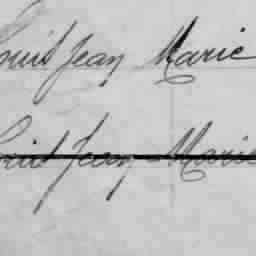 Louis Jean Marie
Louis Jean Marie